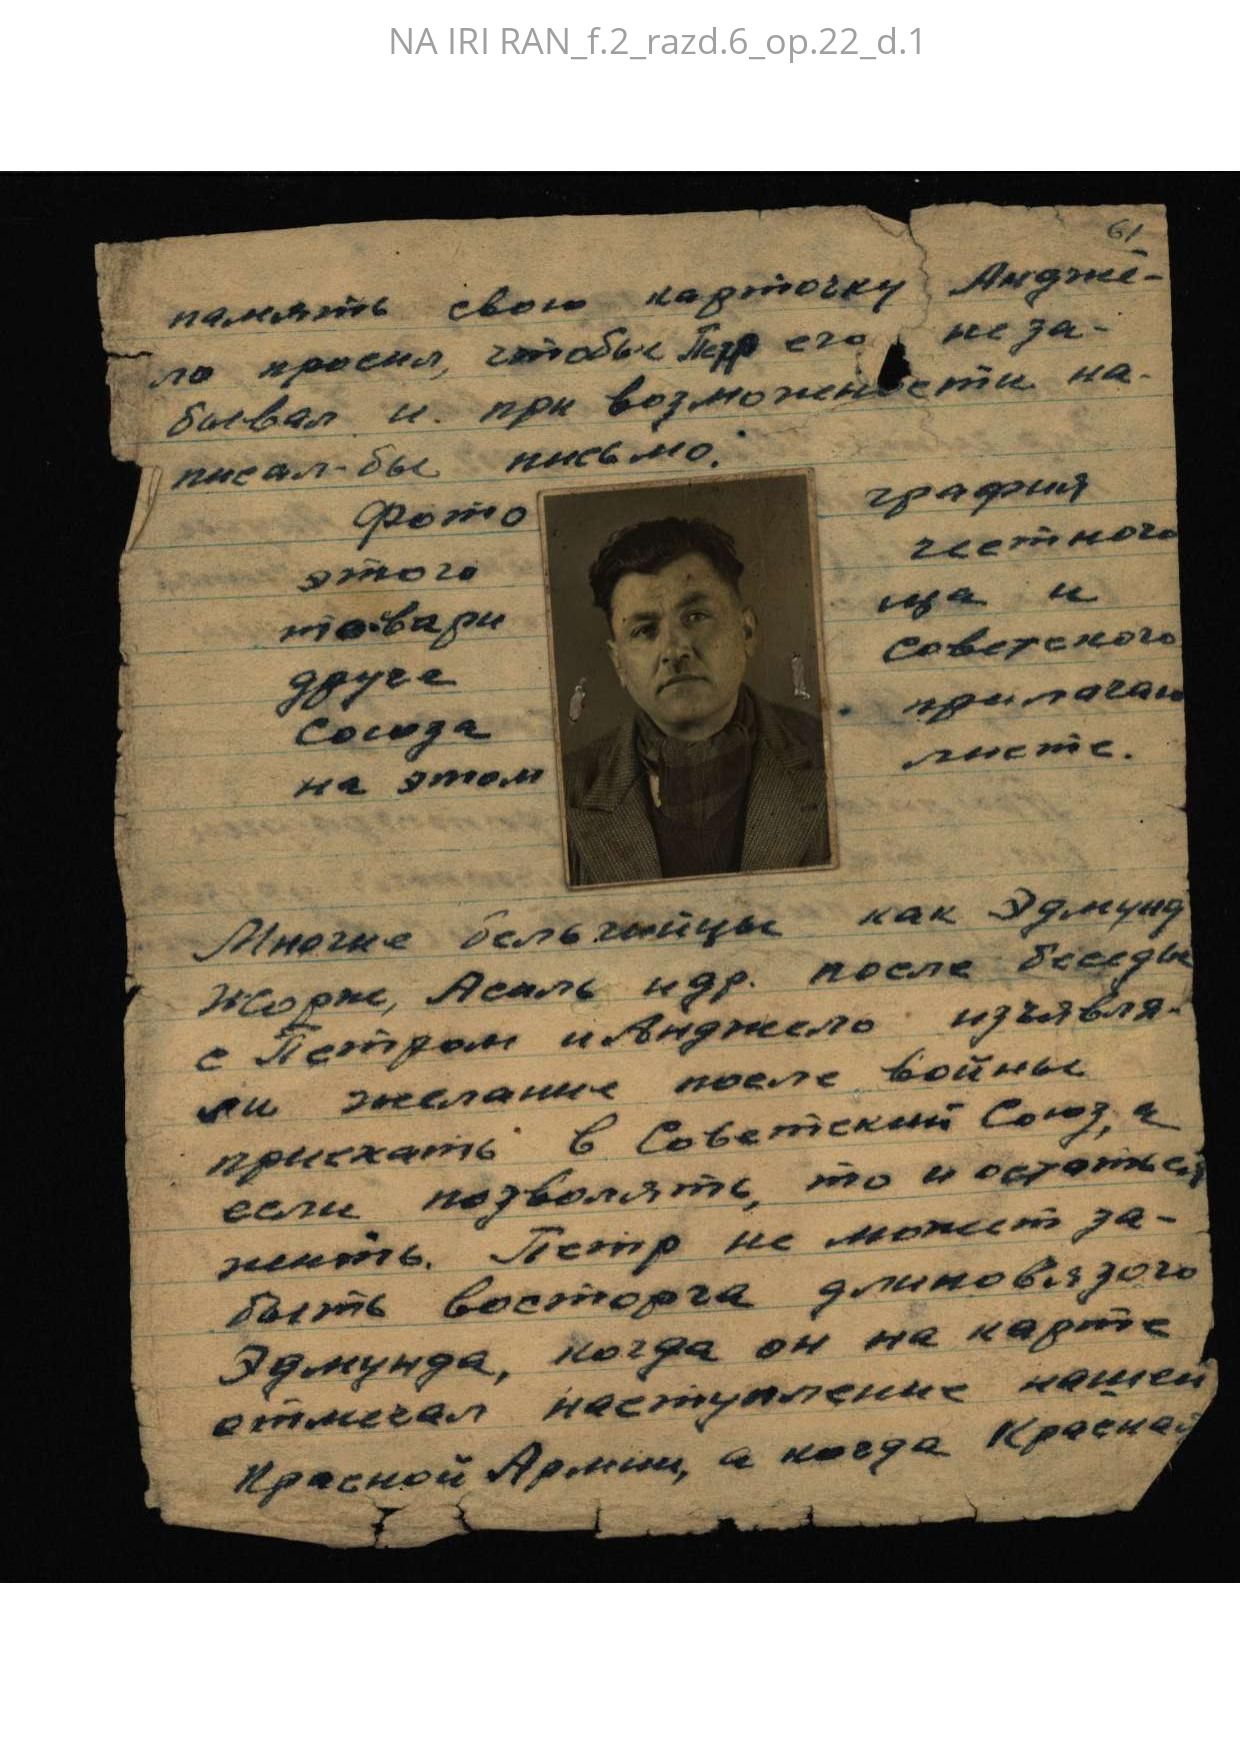 NA IRI RAN_f.2_razd.6_op.22_d.1
61
память свою карточку Андже-
ло просил, чтобы Петр его не за-
бывал и при возможности на-
писал-бы письмо.
Фото графия
этого честного
товари ща и
друга Советского
Союза прилагаю
на этом листе.
Многие бельгийцы как Эдмунд
Жорж, Асаль и др. после беседы
с Петром и Анджело изъявля-
ли желание после войны
приехать в Советский Союз, а
если позволять, то и остаться
жить. Петр не может за-
быть восторга длиновязого
Эдмунда, когда он на карте
отмечал наступление нашей
Красной Армии, а когда Красная